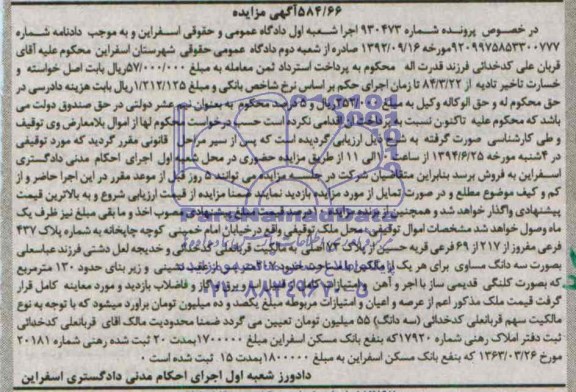 ۵۸۴/۶۶آگهی مزایده
در خصوص پرونده شماره ۹۳۰۴۷۳ اجرا شعبه اول دادگاه عمومی و حقوقی اسفراین و به موجب دادنامه شماره
۹۲۰۹۹۷۵۸۵۳۳۰۰۷۷۷مورخه ۱۳۹۲/۰۹/۱۶ صادره از شعبه دوم دادگاه عمومی حقوقی شهرستان اسفراین محکوم علیه آقای
قربان علی کدخدائی فرزند قدرت اله محکوم به پرداخت استرداد ثمن معامله به مبلغ ۵۷/۰۰۰/۰۰۰ریال بابت اصل خواسته و
خسارت تاخیر تادیه از ۸۴/۳/۲۲ تا زمان اجرای حکم بر اساس نرخ شاخص بانکی و مبلغ ۱/۲۱۲/۱۲۵ریال بابت هزینه دادرسی در
حق محکوم له و حق الوکاله وکیل به مبلغ ریال و ۵ درصد محکوم به عنوان نیم عشر دولتی در حق صندوق دولت می
باشد که محکوم علیه تاکنون نسبت به پرداخت آن اقدامی نکرده است حسب درخواست محکوم لها از اموال بلامعارض وی توقیف
و طی کارشناسی صورت گرفته به شرح ذیل ارزیابی گردیده است که پس از سیر مراحل قانونی مقرر گردید که مورد توقیفی
در ۴شنبه مورخه ۱۳۹۴/۶/۲۵ از ساعت ۱۰الی ۱۱ از طریق مزایده حضوری در محل شعبه اول اجرای احکام مدنی دادگستری
اسفراین به فروش برسد بنابراین متقاضیان شرکت در جلسه مزایده می توانند ۵ روز قبل از موعد مقرر در این اجرا حاضر و از
کم و کیف موضوع مطلع و در صورت تمایل از مورد مزایده بازدید نمایند ضمنا مزایده از قیمت ارزیابی شروع و به بالاترین قیمت
پیشنهادی واگذار خواهد شد و همچنین از برنده مزایده ۱۰ درصد قیمت مبلغ پیشنهادی مصوب اخذ و مابقی مبلغ نیز ظرف یک
ماه وصول خواهد شد مشخصات اموال توقیفی : محل ملک توقیفی واقع در خیابان امام خمینی کوچه چاپخانه به شماره پلاک ۴۳۷
فرعی مفروز از ۲۱۷ از ۶۹ فرعی قریه حسین از پلاک ۷۳ اصلی به مالکیت قربانعلی کدخدائی و خدیجه لعل دشتی فرزند عباسعلی
بصورت سه دانگ مساوی برای هر یک از مالکین به مساحت حدود مترمربع از عقب نشینی و زیر بنای حدود ۱۳۰ مترمربع
که بصورت کلنگی قدیمی ساز با اجر و آهن و امتیازات کامل از قبیل آب و برق و گاز و فاضلاب بازدید و مورد معاینه کامل قرار
گرفت قیمت ملک مذکور اعم از عرصه و اعیان و امتیازات مربوطه مبلغ یکصد و ده میلیون تومان براورد میشود که با توجه به نوع
مالکیت سهم قربانعلی کدخدائی (سه دانگ) ۵۵ میلیون تومان تعیین می گردد ضمنا محدودیت مالک اقای قربانعلی کدخدائی
ثبت دفتر املاک رهنی شماره ۱۷۹۲۰که بنفع بانک مسکن اسفراین مبلغ ۱۷۰۰۰۰۰بمدت ۲۰ ثبت شده رهنی شماره ۲۰۱۸۱
مورخ ۱۳۶۳/۰۳/۲۶ که بنفع بانک مسکن اسفراین به مبلغ ۱۸۰۰۰۰۰بمدت ۱۵ ثبت شده است ۰
دادورز شعبه اول اجرای احکام مدنی دادگستری اسفراین